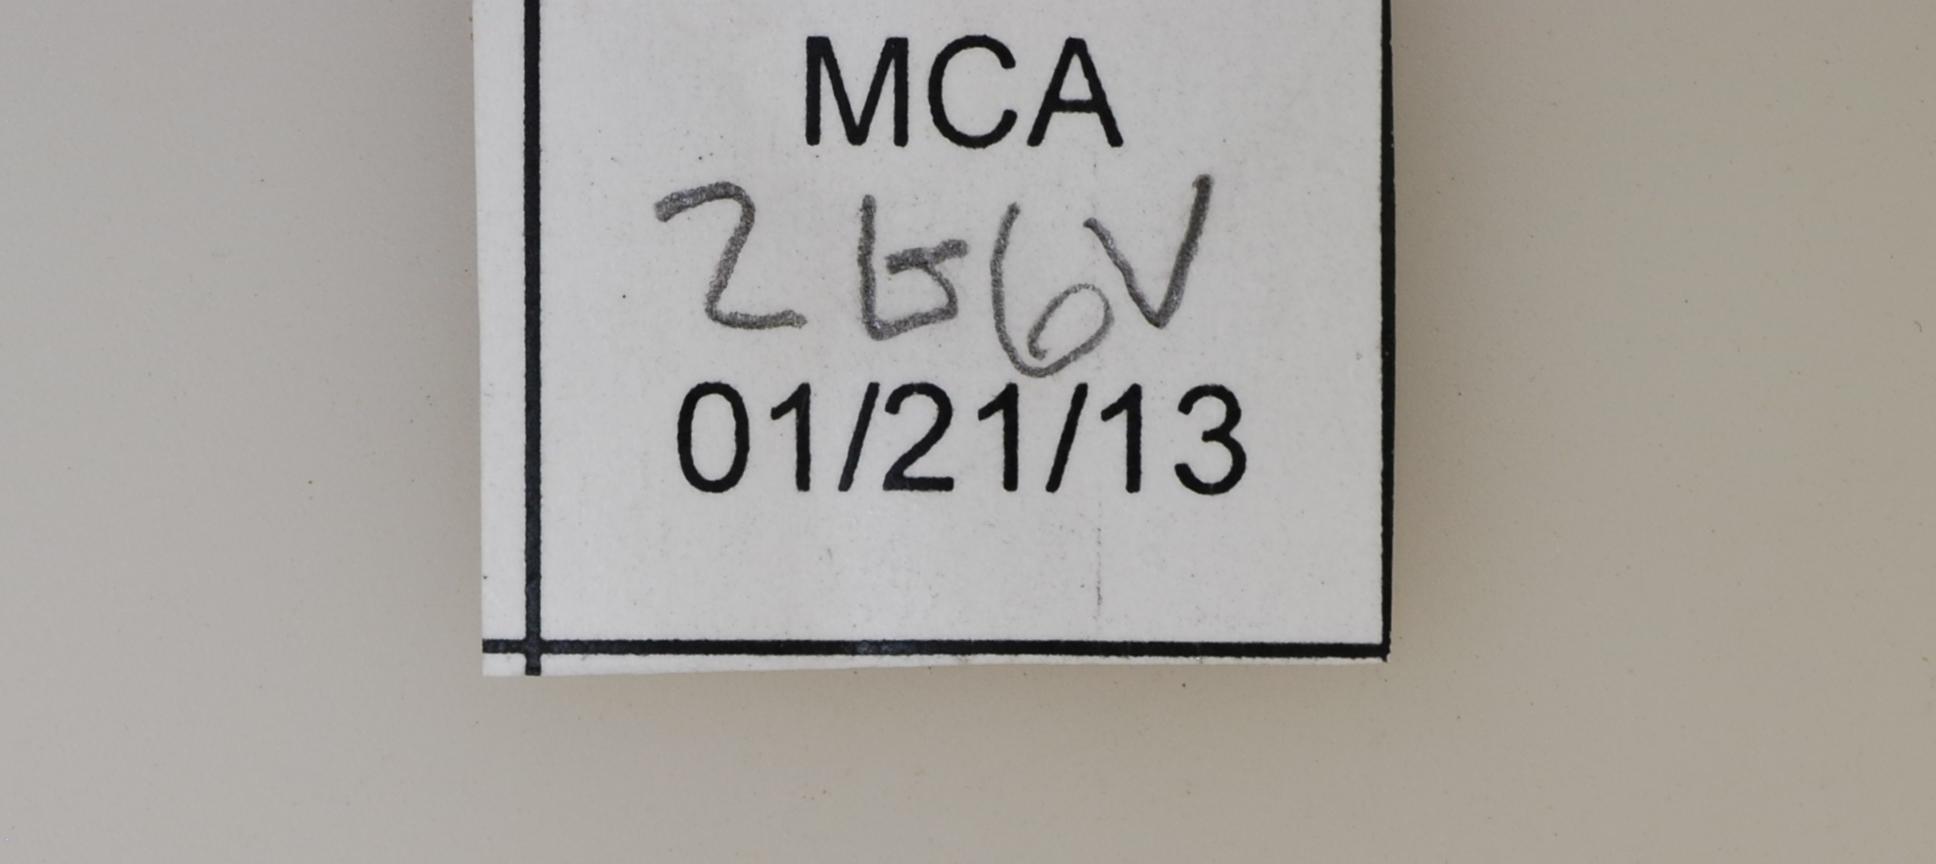 MCA
2 G6V
01/21/13